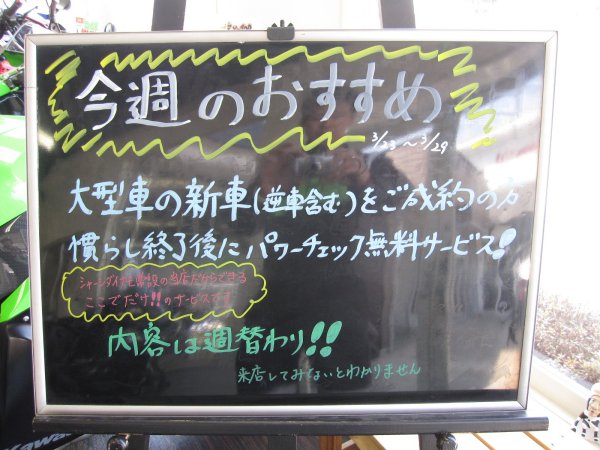 今週のおすすめ
3/23～3/29
大型車の新車(逆車含む)をご成約の方
慣らし終了後にパワーチェック無料サービス!!
シャーシダイナモ常設の当店だからできる
ここでだけ!!のサービスです
内容は週替わり!!
来店してみないとわかりません
Kawa